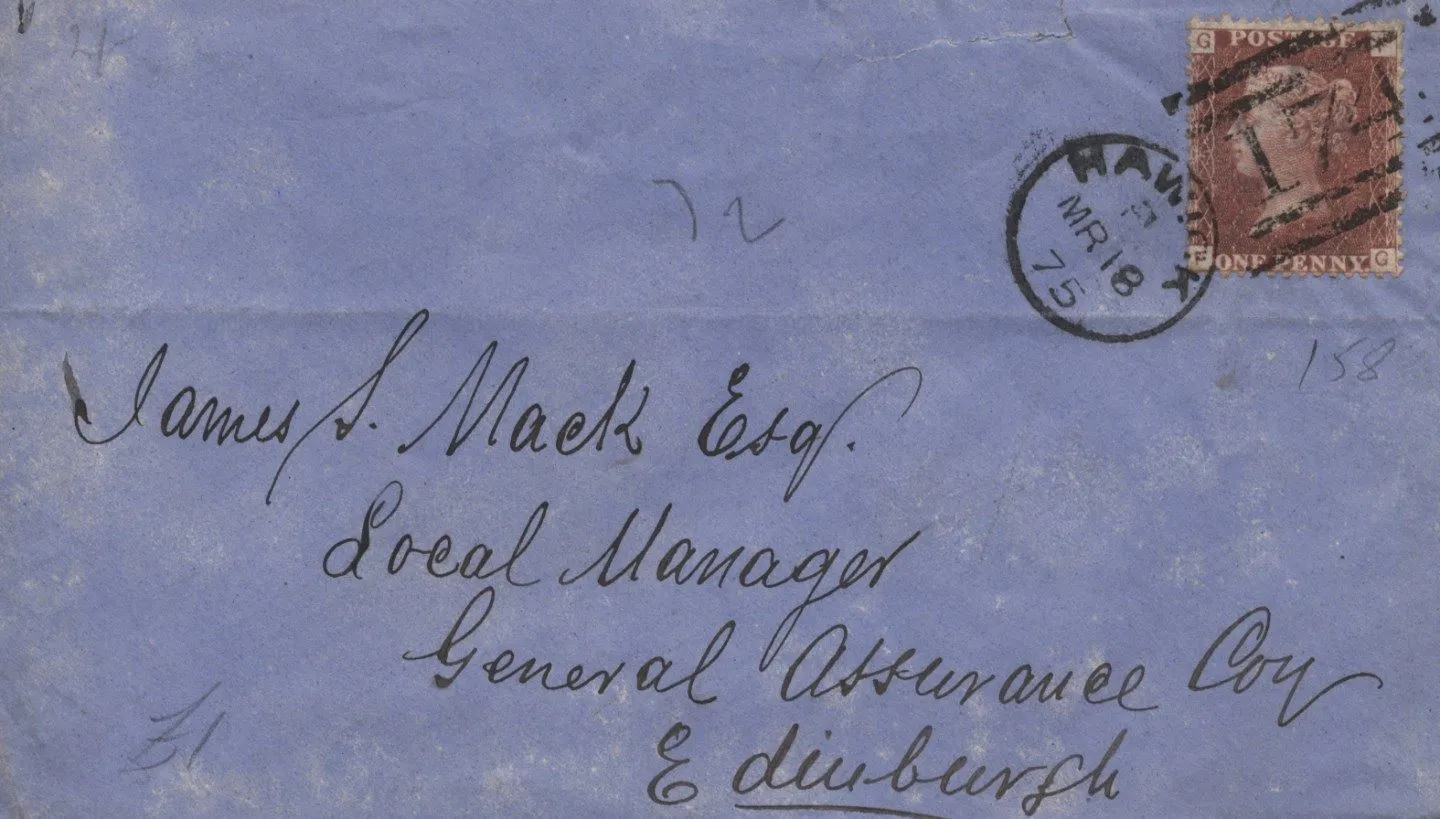 G POSTAGE F
17
HAWICK
MR 18
75
F ONE PENNY G
72
158
James S. Mack Esq.
Local Manager
General Assurance Coy
Edinburgh
£1